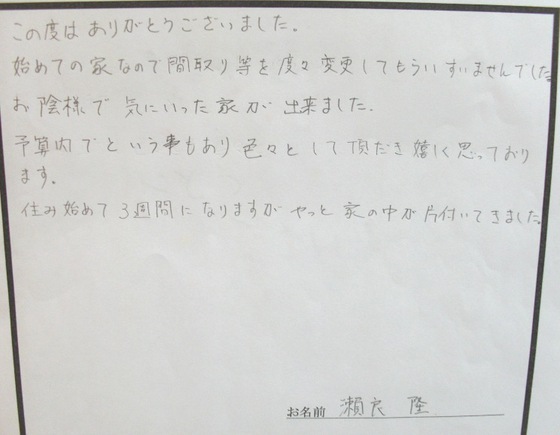 この度は ありがとうございました。
始めての家なので間取り等を度々変更してもらいすいませんでした
お陰様で 気にいった家が 出来ました.
予算内でという事もあり色々として頂だき嬉しく思っており
ます.
住み始めて3週間になりますが やっと家の中が片付いてきました。
お名前 瀬良 隆